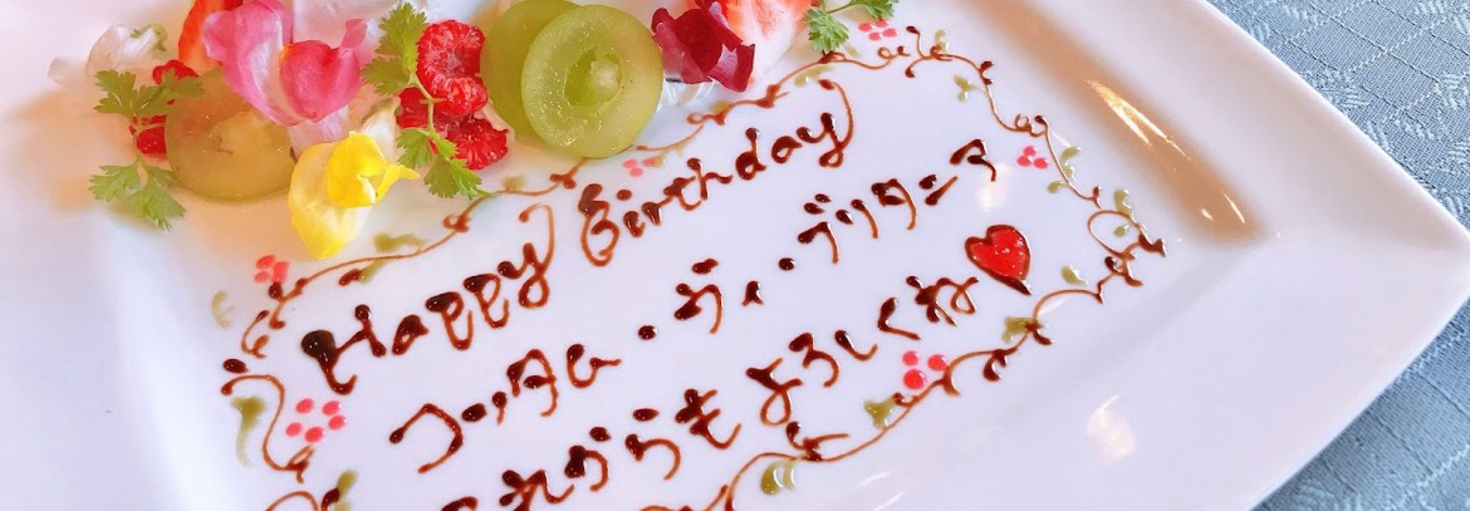 Happy Birthday
コッタム・ヴィ・ブリタニア
これからもよろしくね